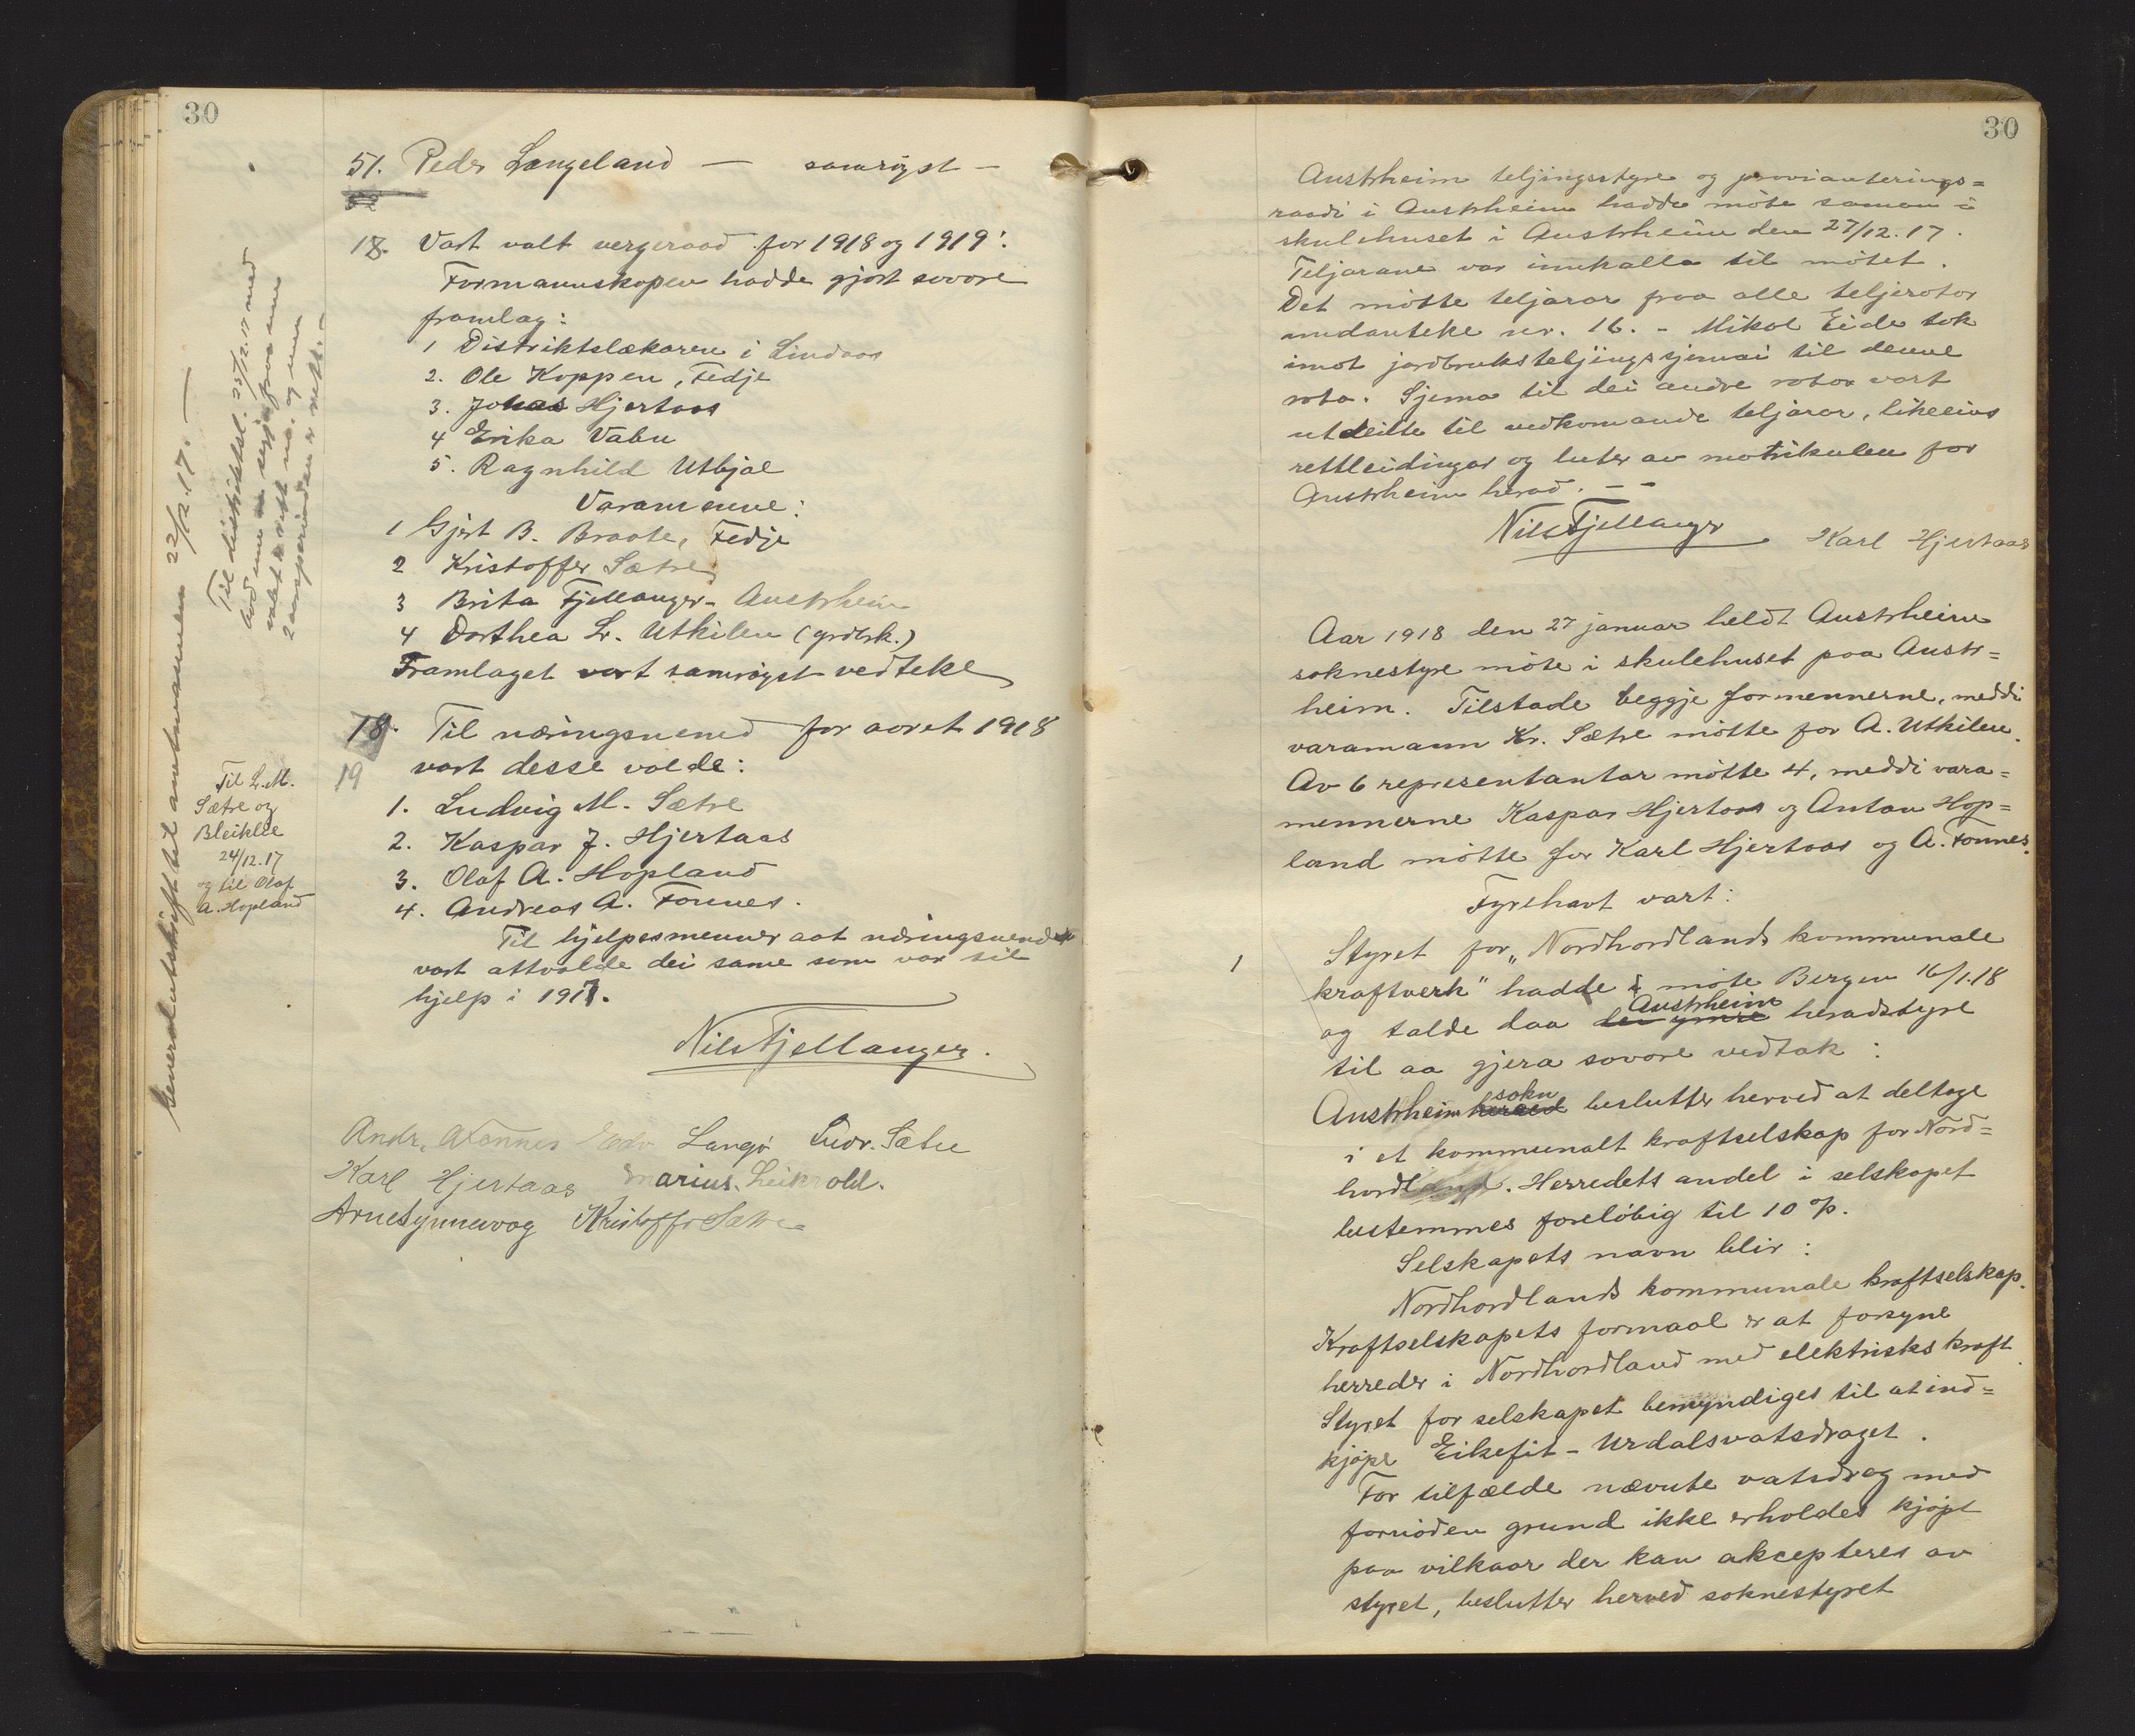 30
51. Peder Langeland — samrøyst —
18. Vart valt vergeraad for 1918 og 1919:
Formannskapen hadde gjort sovore
framlag:
1 Distriktslækaren i Lindaas
2. Ole Koppen, Fedje
3. Johas Hjertaas
4 Erika Vabu
5. Ragnhild Utkjal
Varamenne:
1 Gjert B. Braate, Fedje
2 Kristoffer Sætre
3 Brita Fjellanger - Austrheim
4 Dorthea Lr. Utkilen (grdbrk.)
Framlaget vart samrøyst vedteke
18. Til næringsnemd for aaret 1918
19 vart desse valde:
1. Ludvig M. Sætre
2. Kaspar J. Hjertaas
3. Olaf A. Hopland
4. Andreas A. Fonnes.
Til hjelpesmenner aat næringsnemd
vart attvalde dei same som var til
hjelp i 1917.
Nils Fjellanger.
Andr. A Fonnes Langø Ludv. Sætre
Karl Hjertaas Marius Leikvold.
Arne Synnevaag Kristoffer Sætre
Generalutskrift til amtmannen 22/12.17. —
Til distriktsl. 28/12.17 med
2 aarsperioden er rett. —
Til L.M.
Sætre og
Bleiklie
24/12.17
og til Olaf
A. Hopland
30
Austrheim teljingsstyre og provianterings=
raadi i Austrheim hadde møte saman i
skulehuset i Austrheim den 27/12.17.
Teljarane var innkalla til møtet.
Det møtte teljarar fraa alle teljerotor
undanteke nr. 16. - Mikal Eide tok
imot jordbruksteljingssjemai til denne
rota. Sjema til dei andre rotor vart
utdeilte til vedkomande teljarar, likeeins
rettleidingar og luter av matrikulen for
Austrheim herad. — —
Nils Fjellanger Karl Hjertaas
Aar 1918 den 27 januar heldt Austrheim
soknestyre møte i skulehuset paa Austr=
heim. Tilstade beggje formennerne, meddi
varamann Kr. Sætre møtte for A. Utkilen.
Av 6 representantar møtte 4, meddi vara=
mennerne Kaspar Hjertaas og Anton Hop=
land møtte for Karl Hjertaas og A. Fonnes.
Fyrehavt vart:
1 Styret for „Nordhordlands kommunale
kraftverk" hadde i møte Bergen 16/1.18
Austrheim
og talde daa dei ymse heradstyre
til aa gjera sovore vedtak:
sokn
Austrheim herred beslutter herved at deltage
i et kommunalt kraftselskap for Nord=
hordland. Herredets andel i selskapet
bestemmes foreløbig til 10 %.
Selskapets navn blir:
Nordhordlands kommunale kraftselskap.
Kraftselskapets formaal er at forsyne
herreder i Nordhordland med elektriske kraft.
Styret for selskapet bemyndiges til at ind=
kjøpe Eikefit - Urdalsvatsdraget.
For tilfælde nævnte vatsdrag med
fornøden grund ikke erholdes kjøpt
paa vilkaar der kan aksepteres av
styret, beslutter herved soknestyret